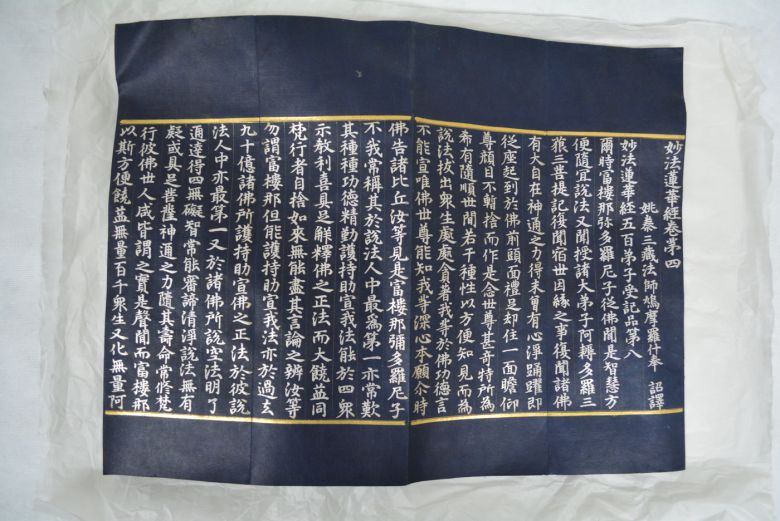 妙法蓮華經卷第四
姚秦三藏法師鳩摩羅什奉 詔譯
妙法蓮華經五百弟子受記品第八
爾時富樓那弥多羅尼子從佛聞是智慧方
便隨宜說法又聞授諸大弟子阿耨多羅三
藐三菩提記復聞宿世因緣之事復聞諸佛
有大自在神通之力得未曾有心淨踊躍即
從座起到於佛前頭面禮足却住一面瞻仰
尊顔目不暫捨而作是念世尊甚奇特所為
希有隨順世間若干種性以方便知見而為
說法拔出眾生處處貪著我等於佛功德言
不能宣唯佛世尊能知我等深心本願尒時
佛告諸比丘汝等見是富樓那彌多羅尼子
不我常稱其於說法人中最為第一亦常歎
其種種功德精勤護持助宣我法能於四眾
示教利喜具足解釋佛之正法而大饒益同
梵行者自捨如來無能盡其言論之辯汝等
勿謂富樓那但能護持助宣我法亦於過去
九十億諸佛所護持助宣佛之正法於彼說
法人中亦最第一又於諸佛所說空法明了
通達得四無礙智常能審諦清淨說法無有
疑惑具足菩薩神通之力隨其壽命常修梵
行彼佛世人咸皆謂之實是聲聞而富樓那
以斯方便饒益無量百千眾生又化無量阿